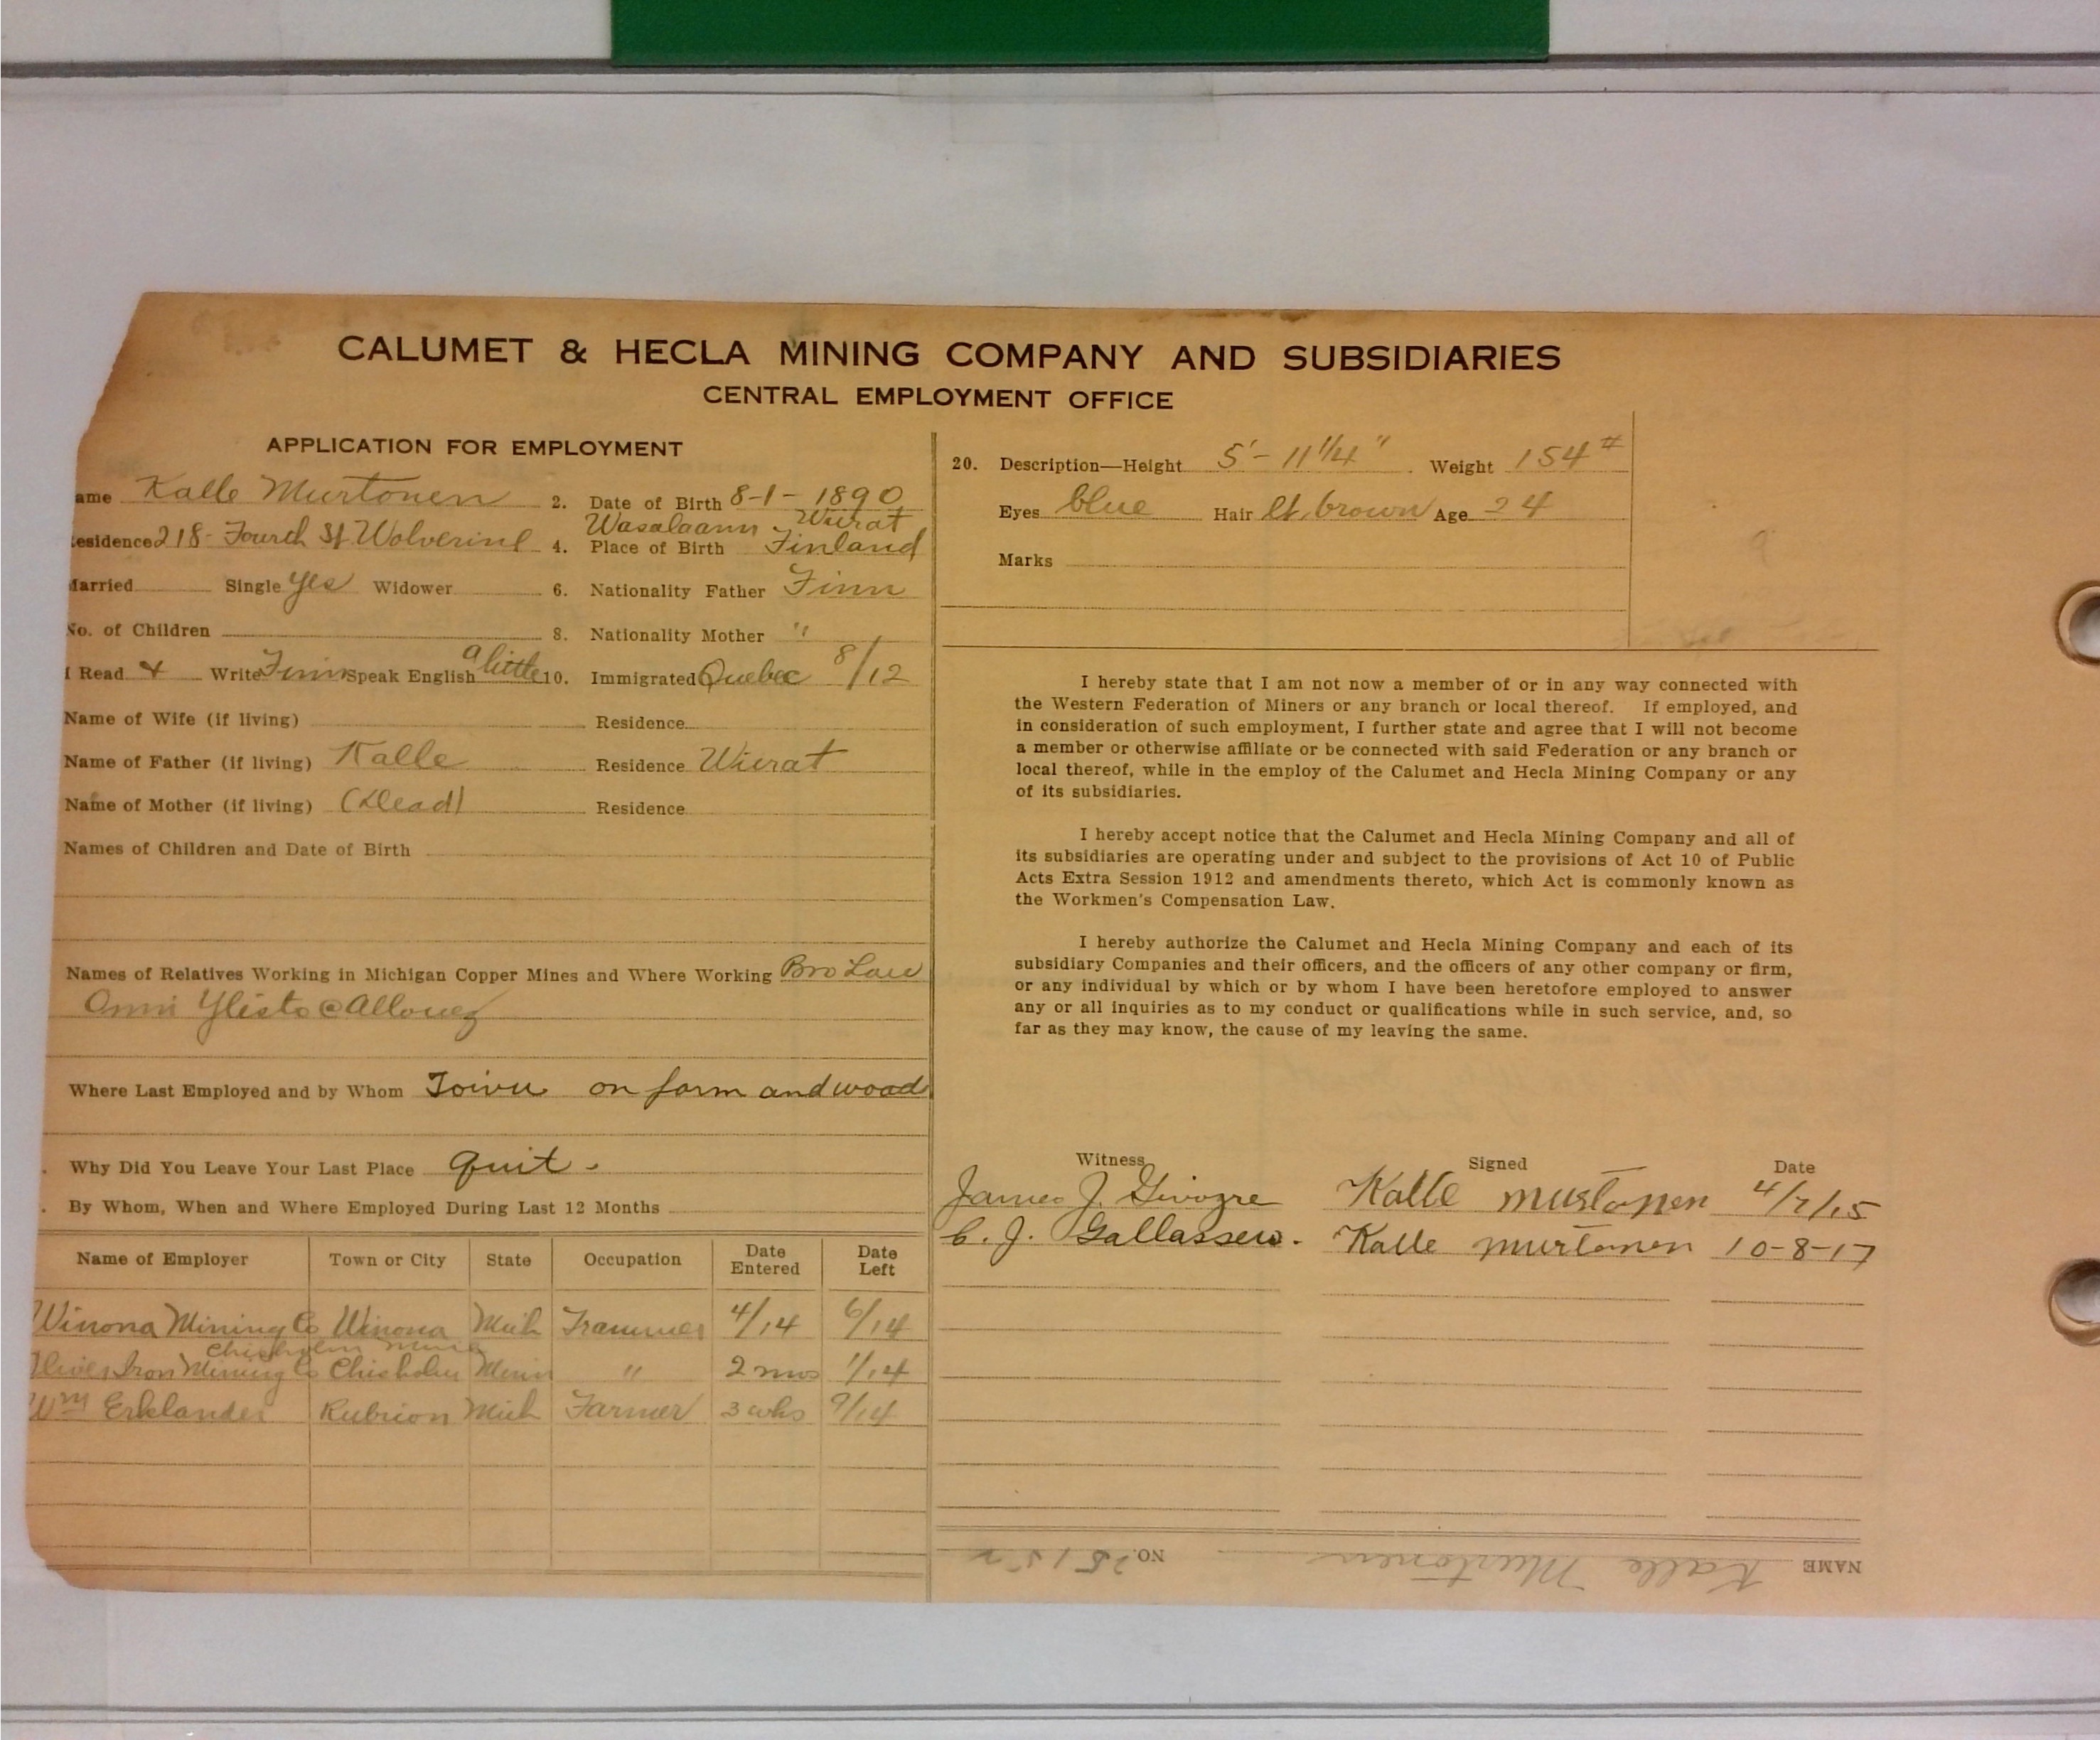 CALUMET & HECLA MINING COMPANY AND SUBSIDIARIES
CENTRAL EMPLOYMENT OFFICE
APPLICATION FOR EMPLOYMENT
ame Kalle Murtonen 2. Date of Birth 8-1-1890
Wasalaann Wiirat
esidence 218- Fourth St Wolverine 4. Place of Birth Finland
Married Single Yes Widower 6. Nationality Father Finn
No. of Children 8. Nationality Mother "
I Read & Write Finn Speak English a little 10. Immigrated Quebec 8/12
Name of Wife (if living) Residence
Name of Father (if living) Kalle Residence Wirrat
Name of Mother (if living) (Dead) Residence
Names of Children and Date of Birth
Names of Relatives Working in Michigan Copper Mines and Where Working Bro Law
Onni Ylisto @ Allouez
Where Last Employed and by Whom Toivu on farm and wood
Why Did You Leave Your Last Place quit.
By Whom, When and Where Employed During Last 12 Months
Name of Employer Town or City State Occupation Date Entered Date Left
Winona Mining Co Winona Mich Trammer 4/14 6/14
Chisholm Mine
Oliver Iron Mining Co Chisholm Minn " 2 mos 1/14
Wm Erklander Rubicon Mich Farmer 3 wks 9/14
20. Description—Height 5'-11 1/4" Weight 154#
Eyes blue Hair lt. brown Age 24
Marks
I hereby state that I am not now a member of or in any way connected with
the Western Federation of Miners or any branch or local thereof. If employed, and
in consideration of such employment, I further state and agree that I will not become
a member or otherwise affiliate or be connected with said Federation or any branch or
local thereof, while in the employ of the Calumet and Hecla Mining Company or any
of its subsidiaries.
I hereby accept notice that the Calumet and Hecla Mining Company and all of
its subsidiaries are operating under and subject to the provisions of Act 10 of Public
Acts Extra Session 1912 and amendments thereto, which Act is commonly known as
the Workmen's Compensation Law.
I hereby authorize the Calumet and Hecla Mining Company and each of its
subsidiary Companies and their officers, and the officers of any other company or firm,
or any individual by which or by whom I have been heretofore employed to answer
any or all inquiries as to my conduct or qualifications while in such service, and, so
far as they may know, the cause of my leaving the same.
Witness Signed Date
James J. Kalle murtonen 4/7/15
C. J. Kalle murtonen 10-8-17
NAME Kalle Murtonen NO.